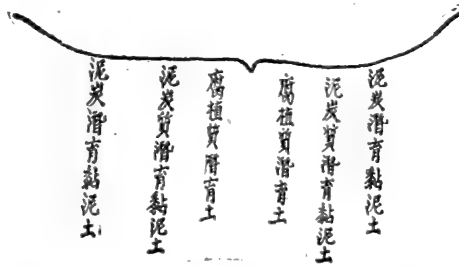 泥炭潛育黏泥土
泥炭質潛育黏泥土
腐植質潛育土
腐植質潛育土
泥炭質潛育黏泥土
泥炭潛育黏泥土